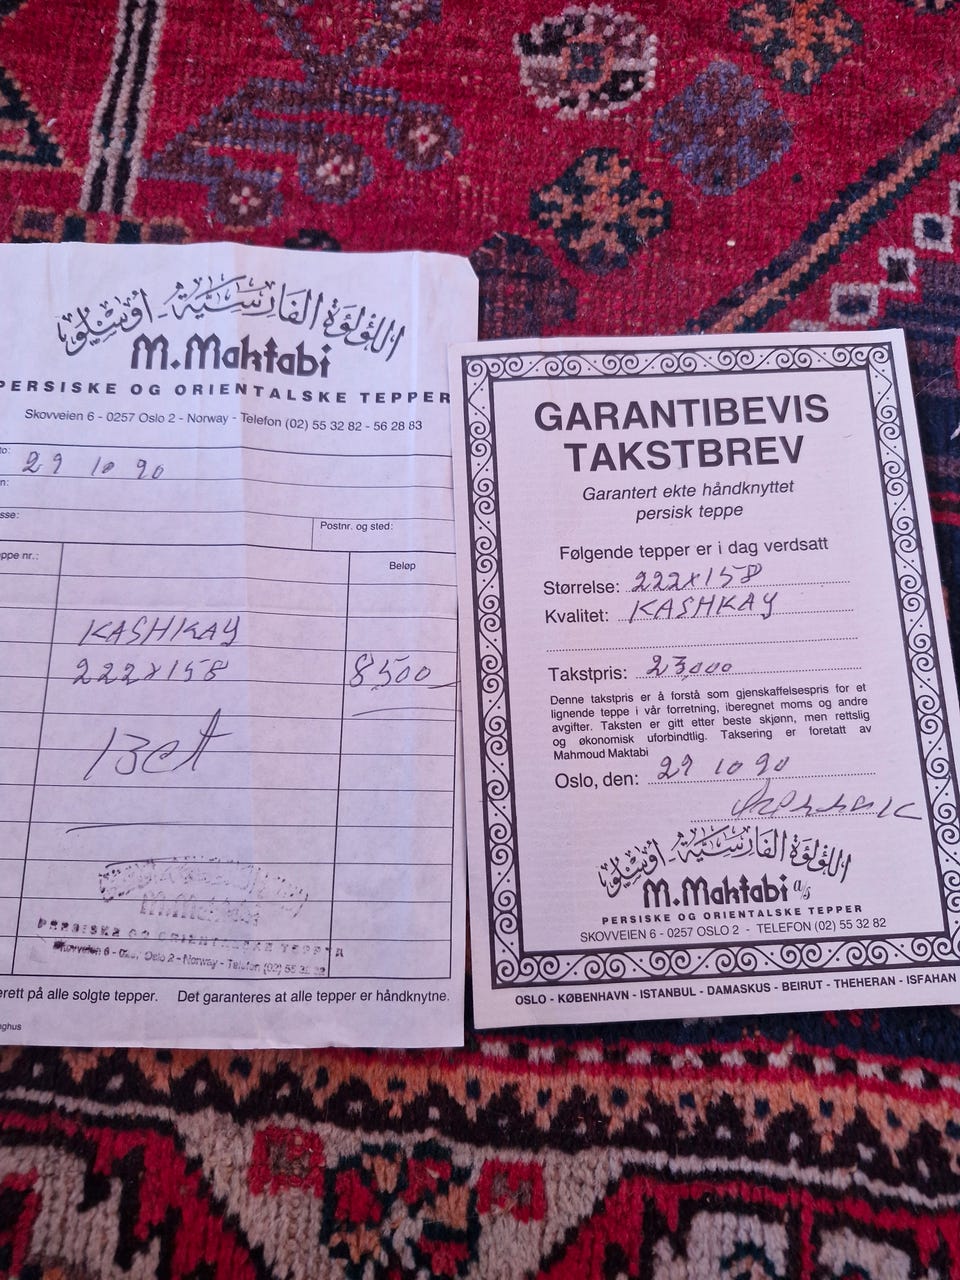 اللؤلؤة الفارسية - أوسلو
M.Maktabi
PERSISKE OG ORIENTALSKE TEPPER
Skovveien 6 - 0257 Oslo 2 - Norway - Telefon (02) 55 32 82 - 56 28 83
to: 29 10 90
n:
sse:
Postnr. og sted:
ppe nr.:
Beløp
KASHKAY
222x158 8500
Bet
M.Maktabi
PERSISKE OG ORIENTALSKE TEPPER
Skovveien 6 - 0257 Oslo 2 - Norway - Telefon (02) 55 32 82
erett på alle solgte tepper. Det garanteres at alle tepper er håndknytne.
nghus
GARANTIBEVIS
TAKSTBREV
Garantert ekte håndknyttet
persisk teppe
Følgende tepper er i dag verdsatt
Størrelse: 222x158
Kvalitet: KASHKAY
Takstpris: 23,000
Denne takstpris er å forstå som gjenskaffelsespris for et
lignende teppe i vår forretning, iberegnet moms og andre
avgifter. Taksten er gitt etter beste skjønn, men rettslig
og økonomisk uforbindtlig. Taksering er foretatt av
Mahmoud Maktabi
Oslo, den: 29 10 90
اللؤلؤة الفارسية - أوسلو
M.Maktabi a/s
PERSISKE OG ORIENTALSKE TEPPER
SKOVVEIEN 6 - 0257 OSLO 2 - TELEFON (02) 55 32 82
OSLO - KØBENHAVN - ISTANBUL - DAMASKUS - BEIRUT - THEHERAN - ISFAHAN